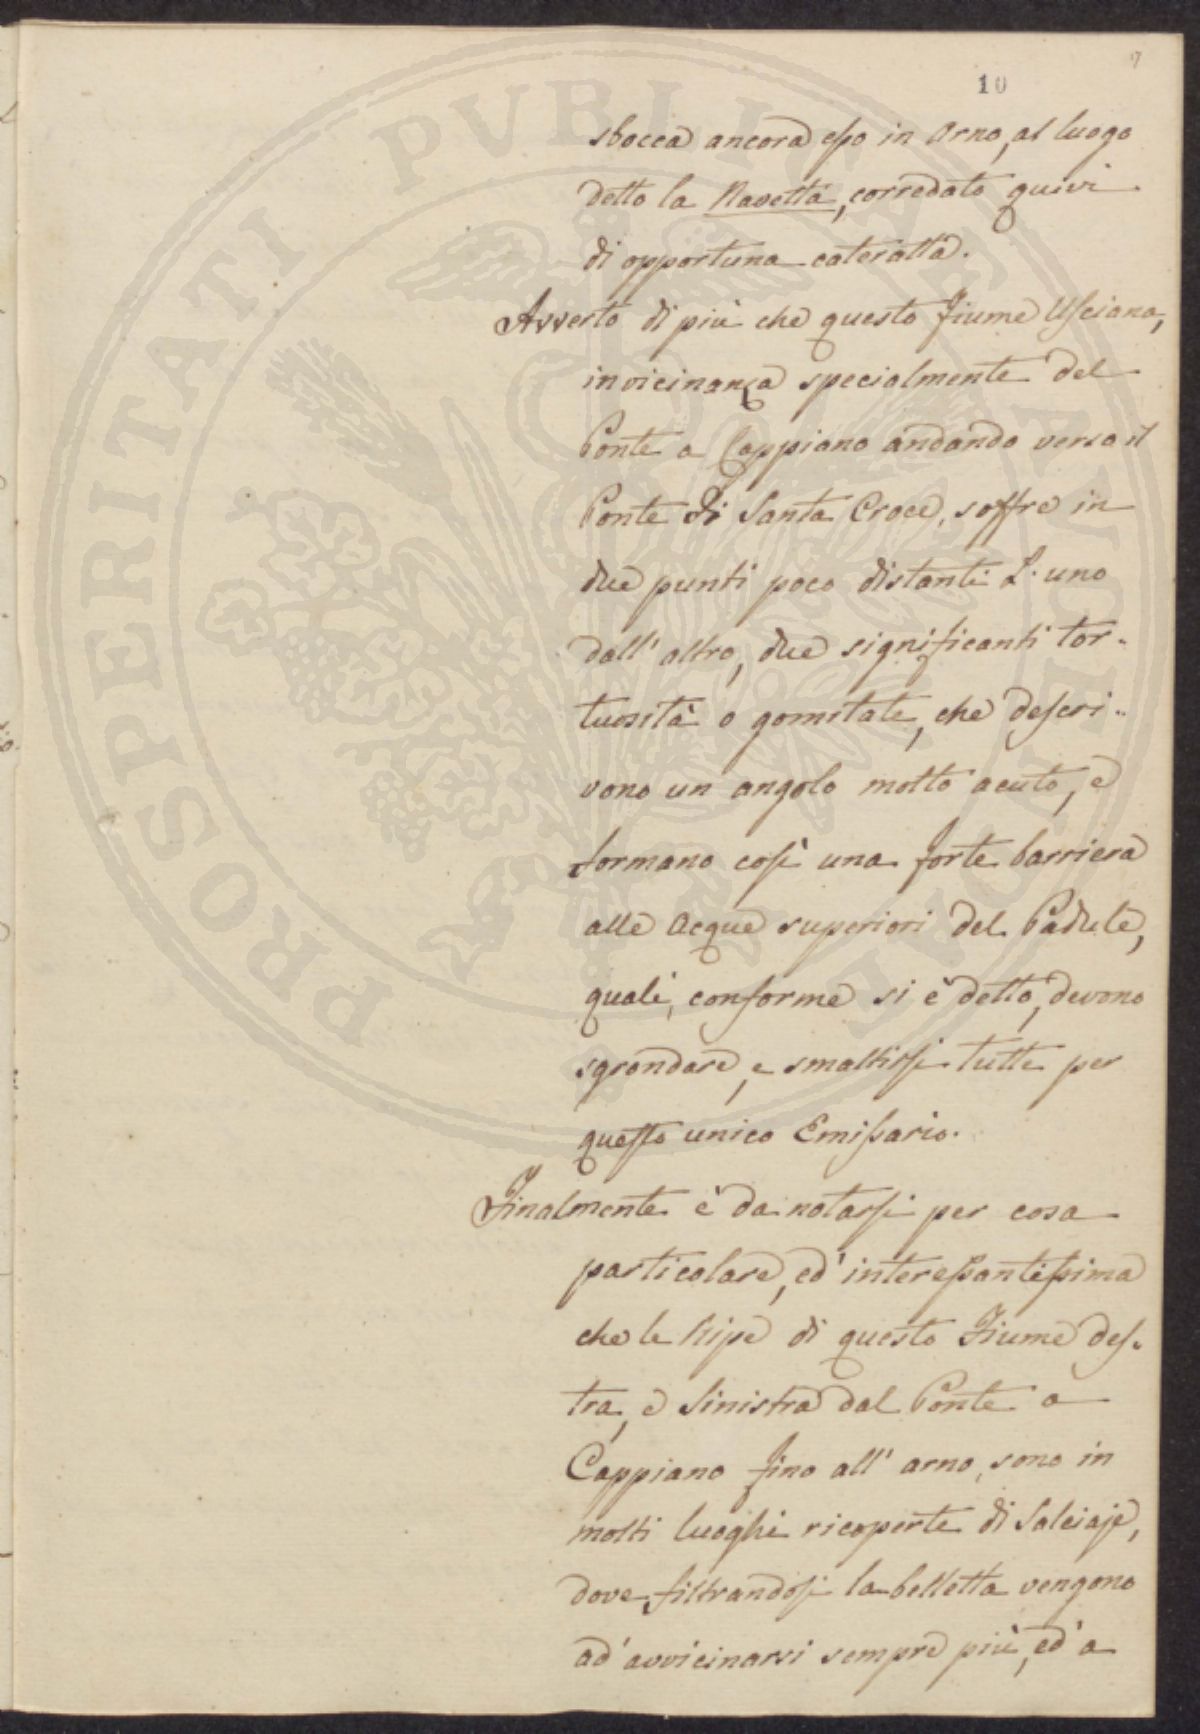 10
sbocca ancora esso in Arno, al luogo
detto la Navetta, corredato quivi
di opportuna cateratta.
Avverto di più che questo Fiume Usciana,
in vicinanza specialmente del
Ponte a Cappiano andando verso il
Ponte di Santa Croce, soffre in
due punti poco distanti L'uno
dall'altro, due significanti tor..
tuosità o gomitate, che descri..
vono un angolo molto acuto, e
formano così una forte barriera
alle Acque superiori del Padule,
quali, conforme si è detto, devono
sgrondare, e smaltirsi tutte per
questo unico Emissario.
Finalmente è da notarsi per cosa
particolare, ed' interessantissima
che le Ripe di questo Fiume des..
tra, e Sinistra dal Ponte a
Cappiano fino all' arno, sono in
molti luoghi ricoperte di Salciaje,
dove filtrandosi la belletta vengono
ad' avvicinarsi sempre più, ed' a
PROSPERITATI PVBLICAE AVGENDAE